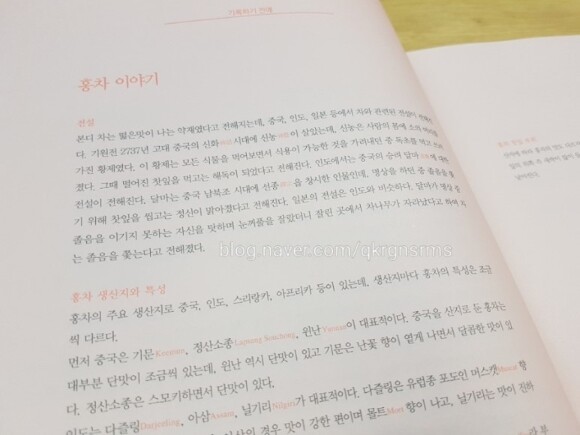 홍차 이야기
전설
본디 차는 떫은맛이 나는 약재였다고 전해지는데, 중국, 인도, 일본 등에서 차와 관련된 전설이
다. 기원전 2737년 고대 중국의 신화 시대에 신농이 살았는데, 신농은 사람의 몸에 소의 머리를
가진 황제였다. 이 황제는 모든 식물을 먹어보면서 식용이 가능한 것을 가려내던 중 독초를 먹고
졌다. 그때 떨어진 찻잎을 먹고는 해독이 되었다고 전해진다. 인도에서는 중국의 승려 달마
전설이 전해진다. 달마는 중국 남북조 시대에 선종을 창시한 인물인데, 명상을 하던 중 졸음을
기 위해 찻잎을 씹고는 정신이 맑아졌다고 전해진다. 일본의 전설은 인도와 비슷하다. 달마가 명상 중
졸음을 이기지 못하는 자신을 탓하며 눈꺼풀을 잘랐더니 잘린 곳에서 차나무가 자라났다고 하며
는 졸음을 쫓는다고 전해졌다.
blog.naver.com/qkrgnsrms
홍차 생산지와 특성
홍차의 주요 생산지로 중국, 인도, 스리랑카, 아프리카 등이 있는데, 생산지마다 홍차의 특성은 조금
씩 다르다.
먼저 중국은 기문Keemun, 정산소종Lapsang Souchong, 윈난Yunnan이 대표적이다. 중국을 산지로 둔 홍차는
대부분 단맛이 조금씩 있는데, 윈난 역시 단맛이 있고 기문은 난꽃 향이 옅게 나면서 달콤한 맛이 있
다. 정산소종은 스모키하면서 단맛이 있다.
인도는 다즐링Darjeeling, 아삼Assam, 닐기리Nilgiri가 대표적이다. 다즐링은 유럽종 포도인 머스캣Muscat 향
의 경우 맛이 강한 편이며 몰트Malt 향이 나고, 닐기리는 맛이 진하